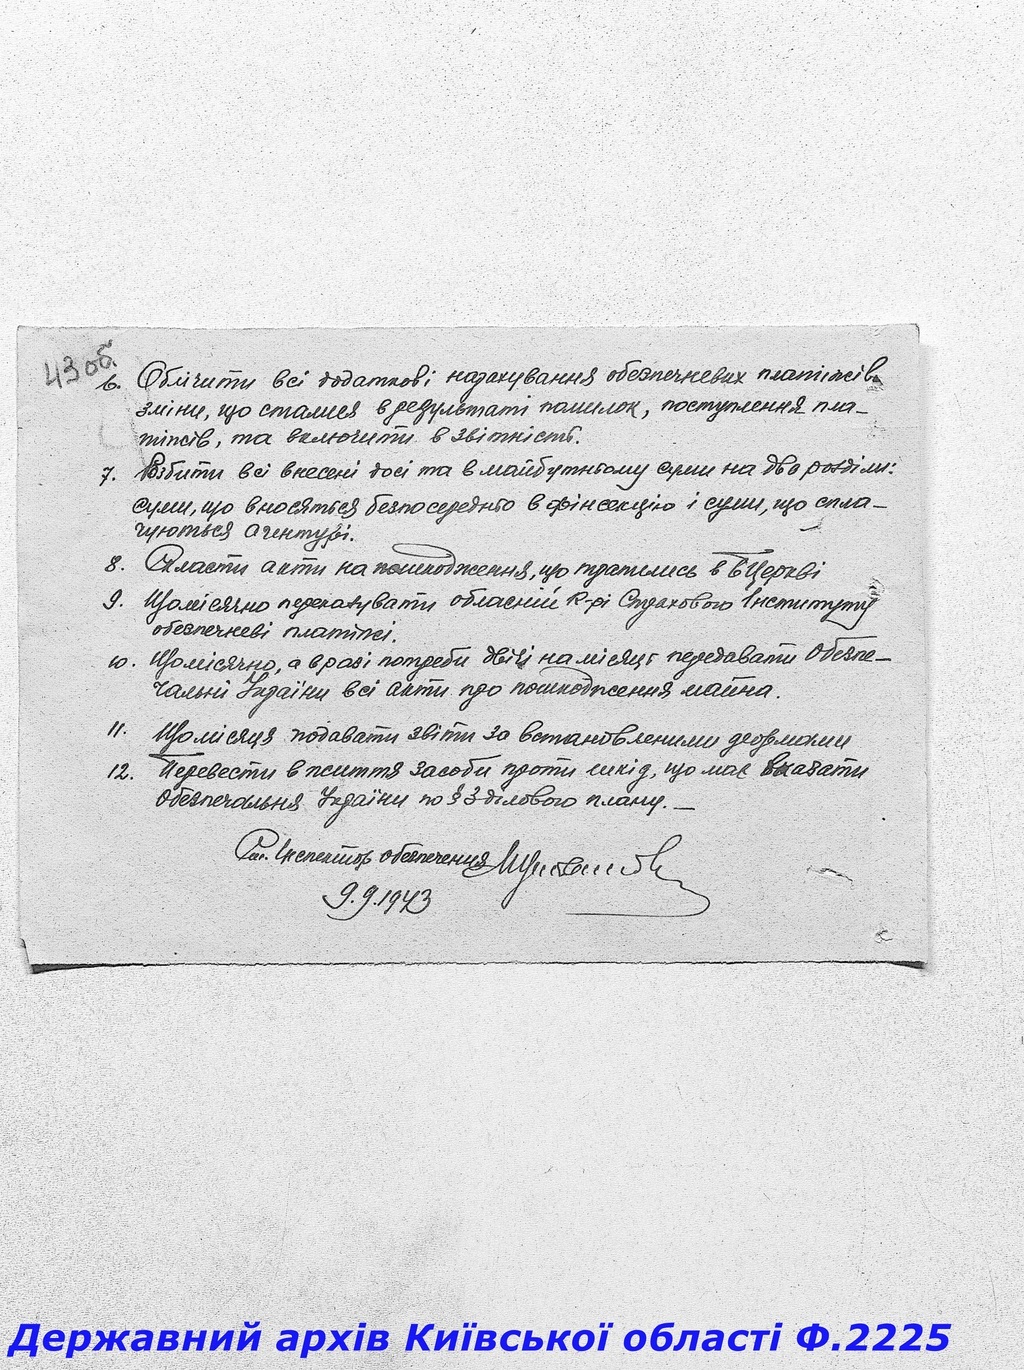 43 об.
6. Облічити всі додаткові нарахування обезпечневих платіжів
зміни, що сталися в результаті помилок, поступлення пла-
тіжів, та включити в звітність.
7. Розбити всі внесені досі та в майбутньому суми на два розділи:
суми, що вносяться безпосередньо в фінсекцію і суми, що спла-
чуються агентурі.
8. Скласти акти на пошкодження, що трапились в Б Церкві
9. Щомісячно переказувати обласній К-рі Страхового Інституту
обезпечневі платіжі.
10. Щомісячно, а в разі потреби двічі на місяць передавати Обезпе-
чальні України всі акти про пошкодження майна.
11. Щомісяця подавати звіти за встановленими формами
12. Перевести в життя засоби проти шкід, що має вказати
Обезпечальня України по § 3 ділового плану. —
Рай. Інспектор обезпечення
9.9.1943
Державний архів Київської області Ф.2225